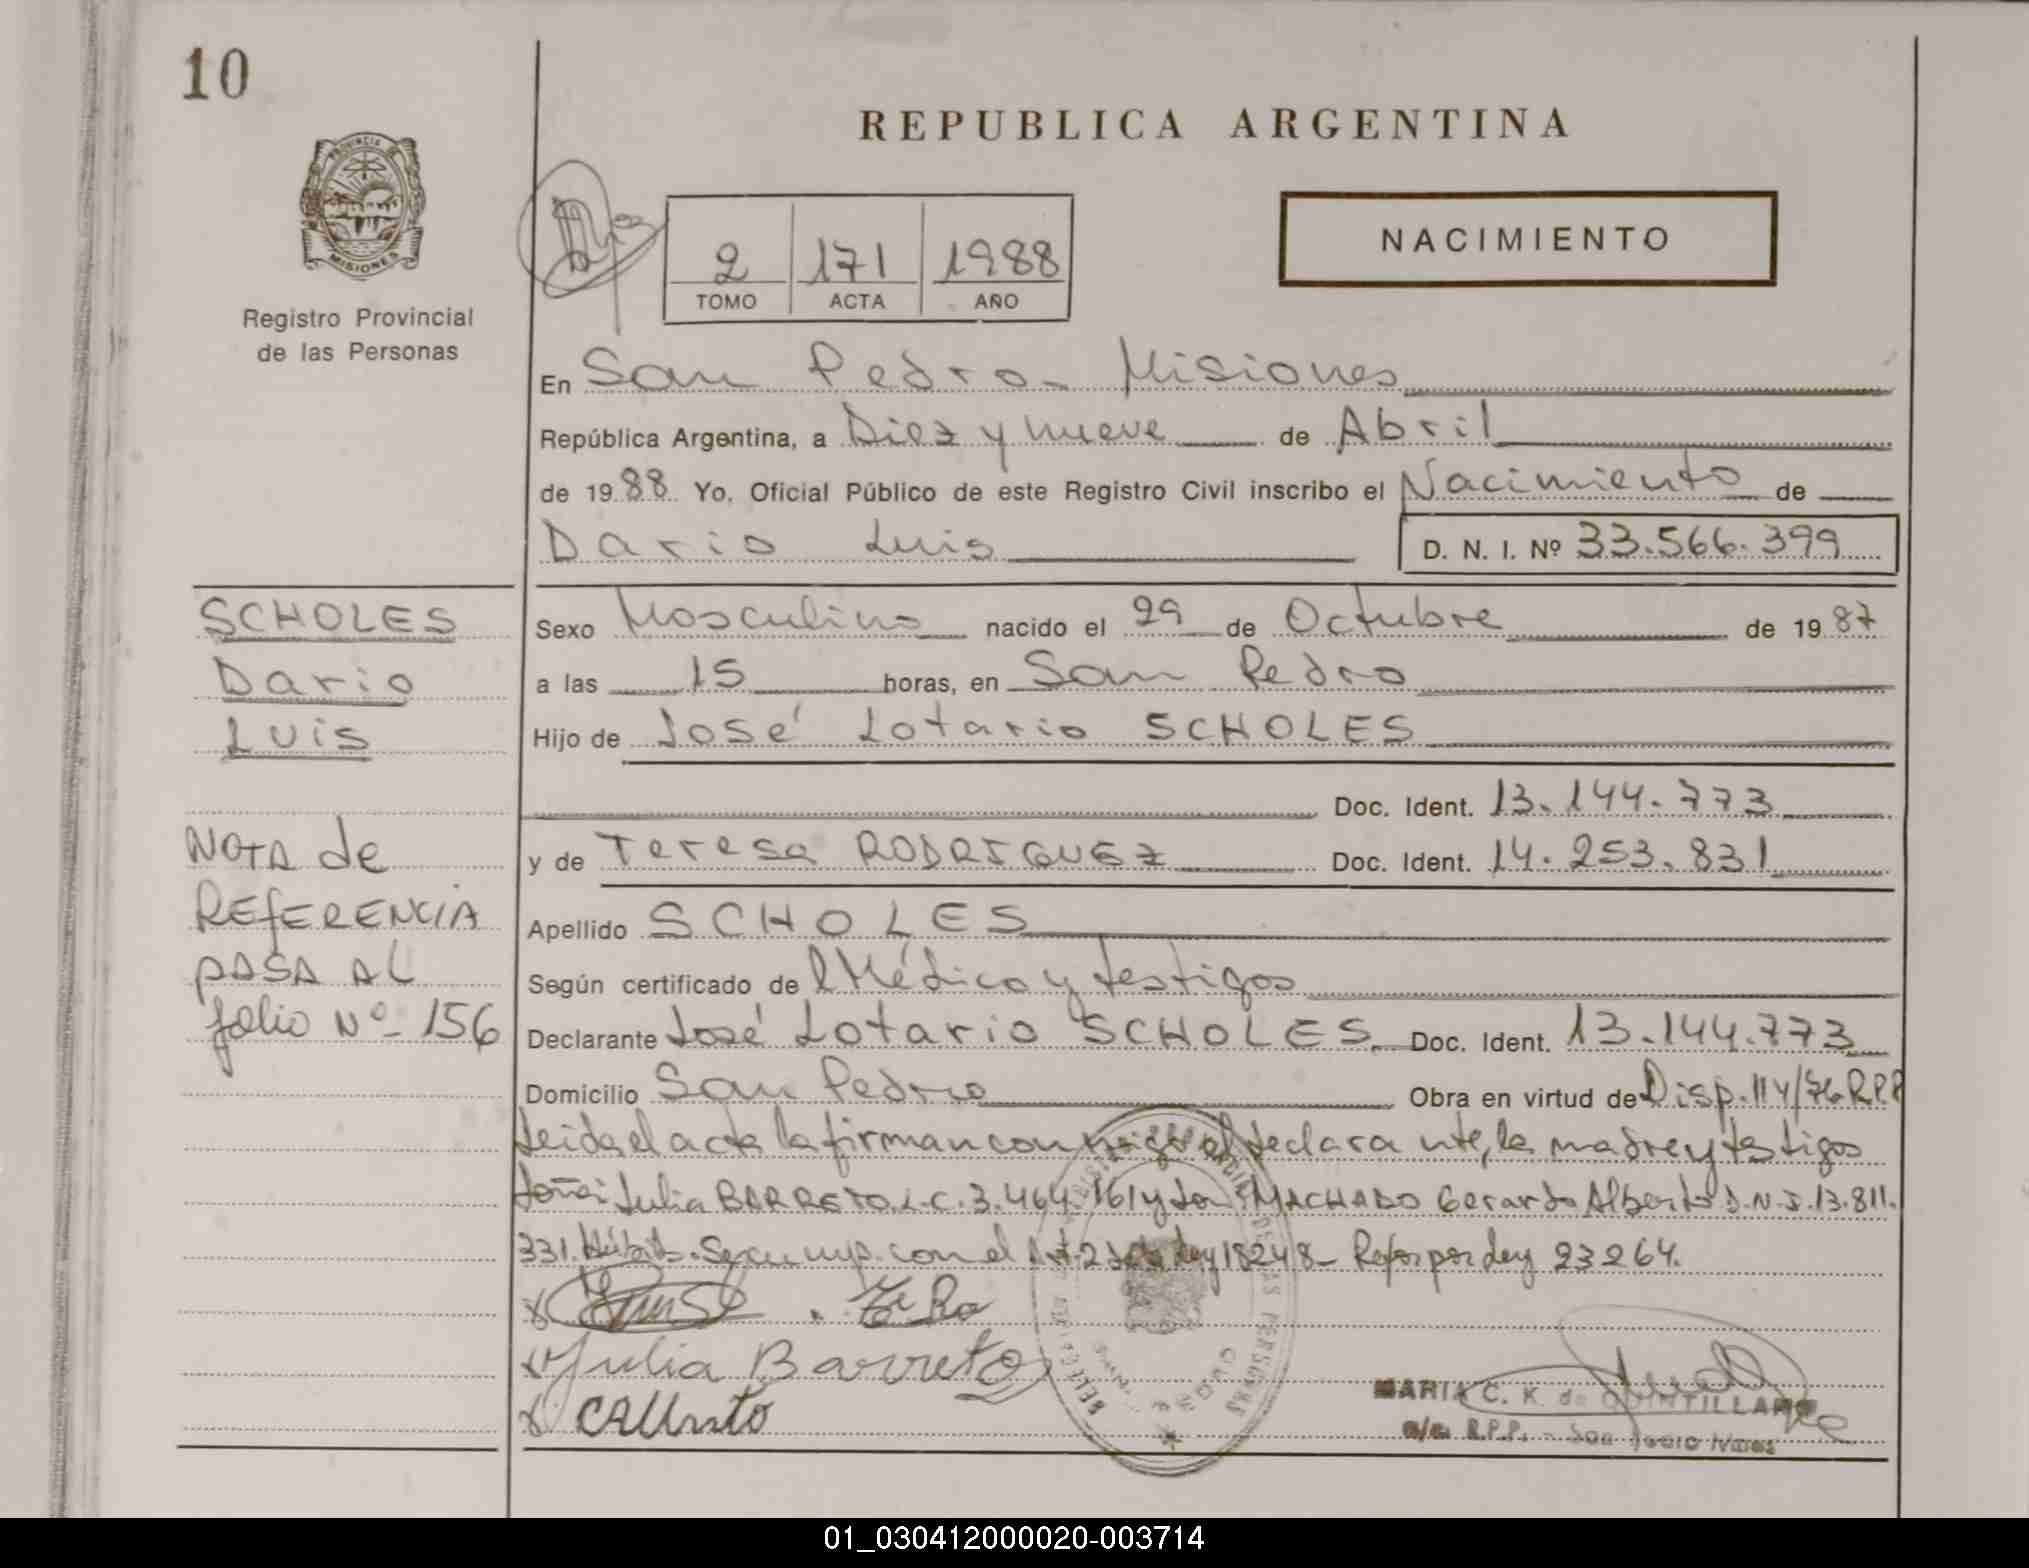 10
REPUBLICA ARGENTINA
PROVINCIA DE
MISIONES
Registro Provincial
de las Personas
2 171 1988
TOMO ACTA AÑO
NACIMIENTO
En San Pedro - Misiones
República Argentina, a Diez y nueve de Abril
de 1988 Yo, Oficial Público de este Registro Civil inscribo el Nacimiento de
Dario Luis D. N. I. Nº 33.566.399
SCHOLES
Dario
Luis
Sexo Masculino nacido el 29 de Octubre de 1987
a las 15 horas, en San Pedro
Hijo de José Lotario SCHOLES
Doc. Ident. 13.144.773
y de Teresa RODRIGUEZ Doc. Ident. 14.253.831
NOTA de
REFERENCIA
PASA AL
folio Nº 156
Apellido SCHOLES
Según certificado de l Médico y testigos
Declarante José Lotario SCHOLES Doc. Ident. 13.144.773
Domicilio San Pedro Obra en virtud de Disp. 114/76 R.P.P
Leida el acta la firman conmigo el declarante, la madre y testigos
doña Julia BARRETO L.C. 3.464.161 y don MACHADO Gerardo Alberto D.N.I. 13.811.
331. Se cump. con el Art. 2 de la Ley 18248 - Refor por Ley 23264.
Julia Barreto
MARIA C. K. de QUINTILLAN
a/c. R.P.P. - San Pedro Mnes
01_030412000020-003714